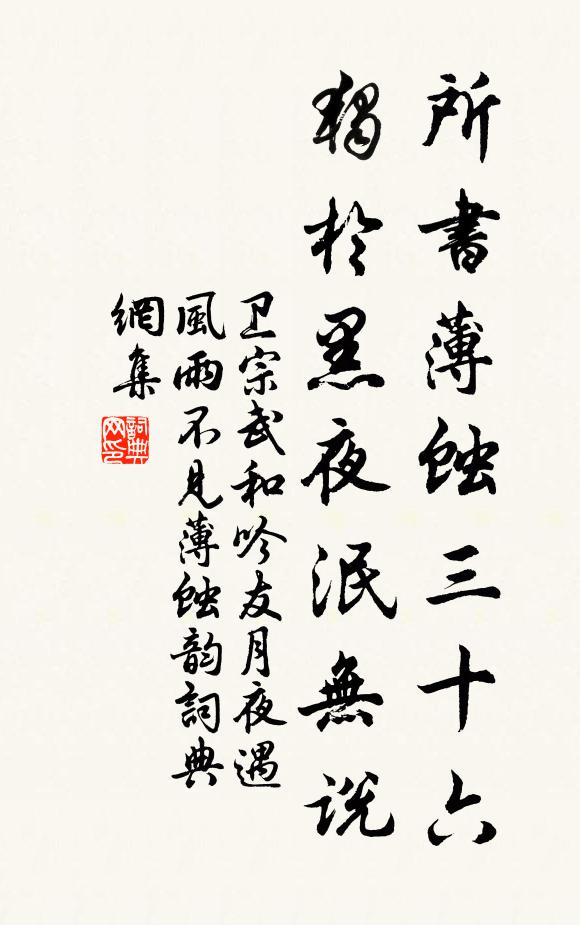 所書薄蝕三十六
獨於黑夜泯無說
卫宗武和吟友月夜遇
風雨不見薄蝕韵詞典
網集
詞典
网印